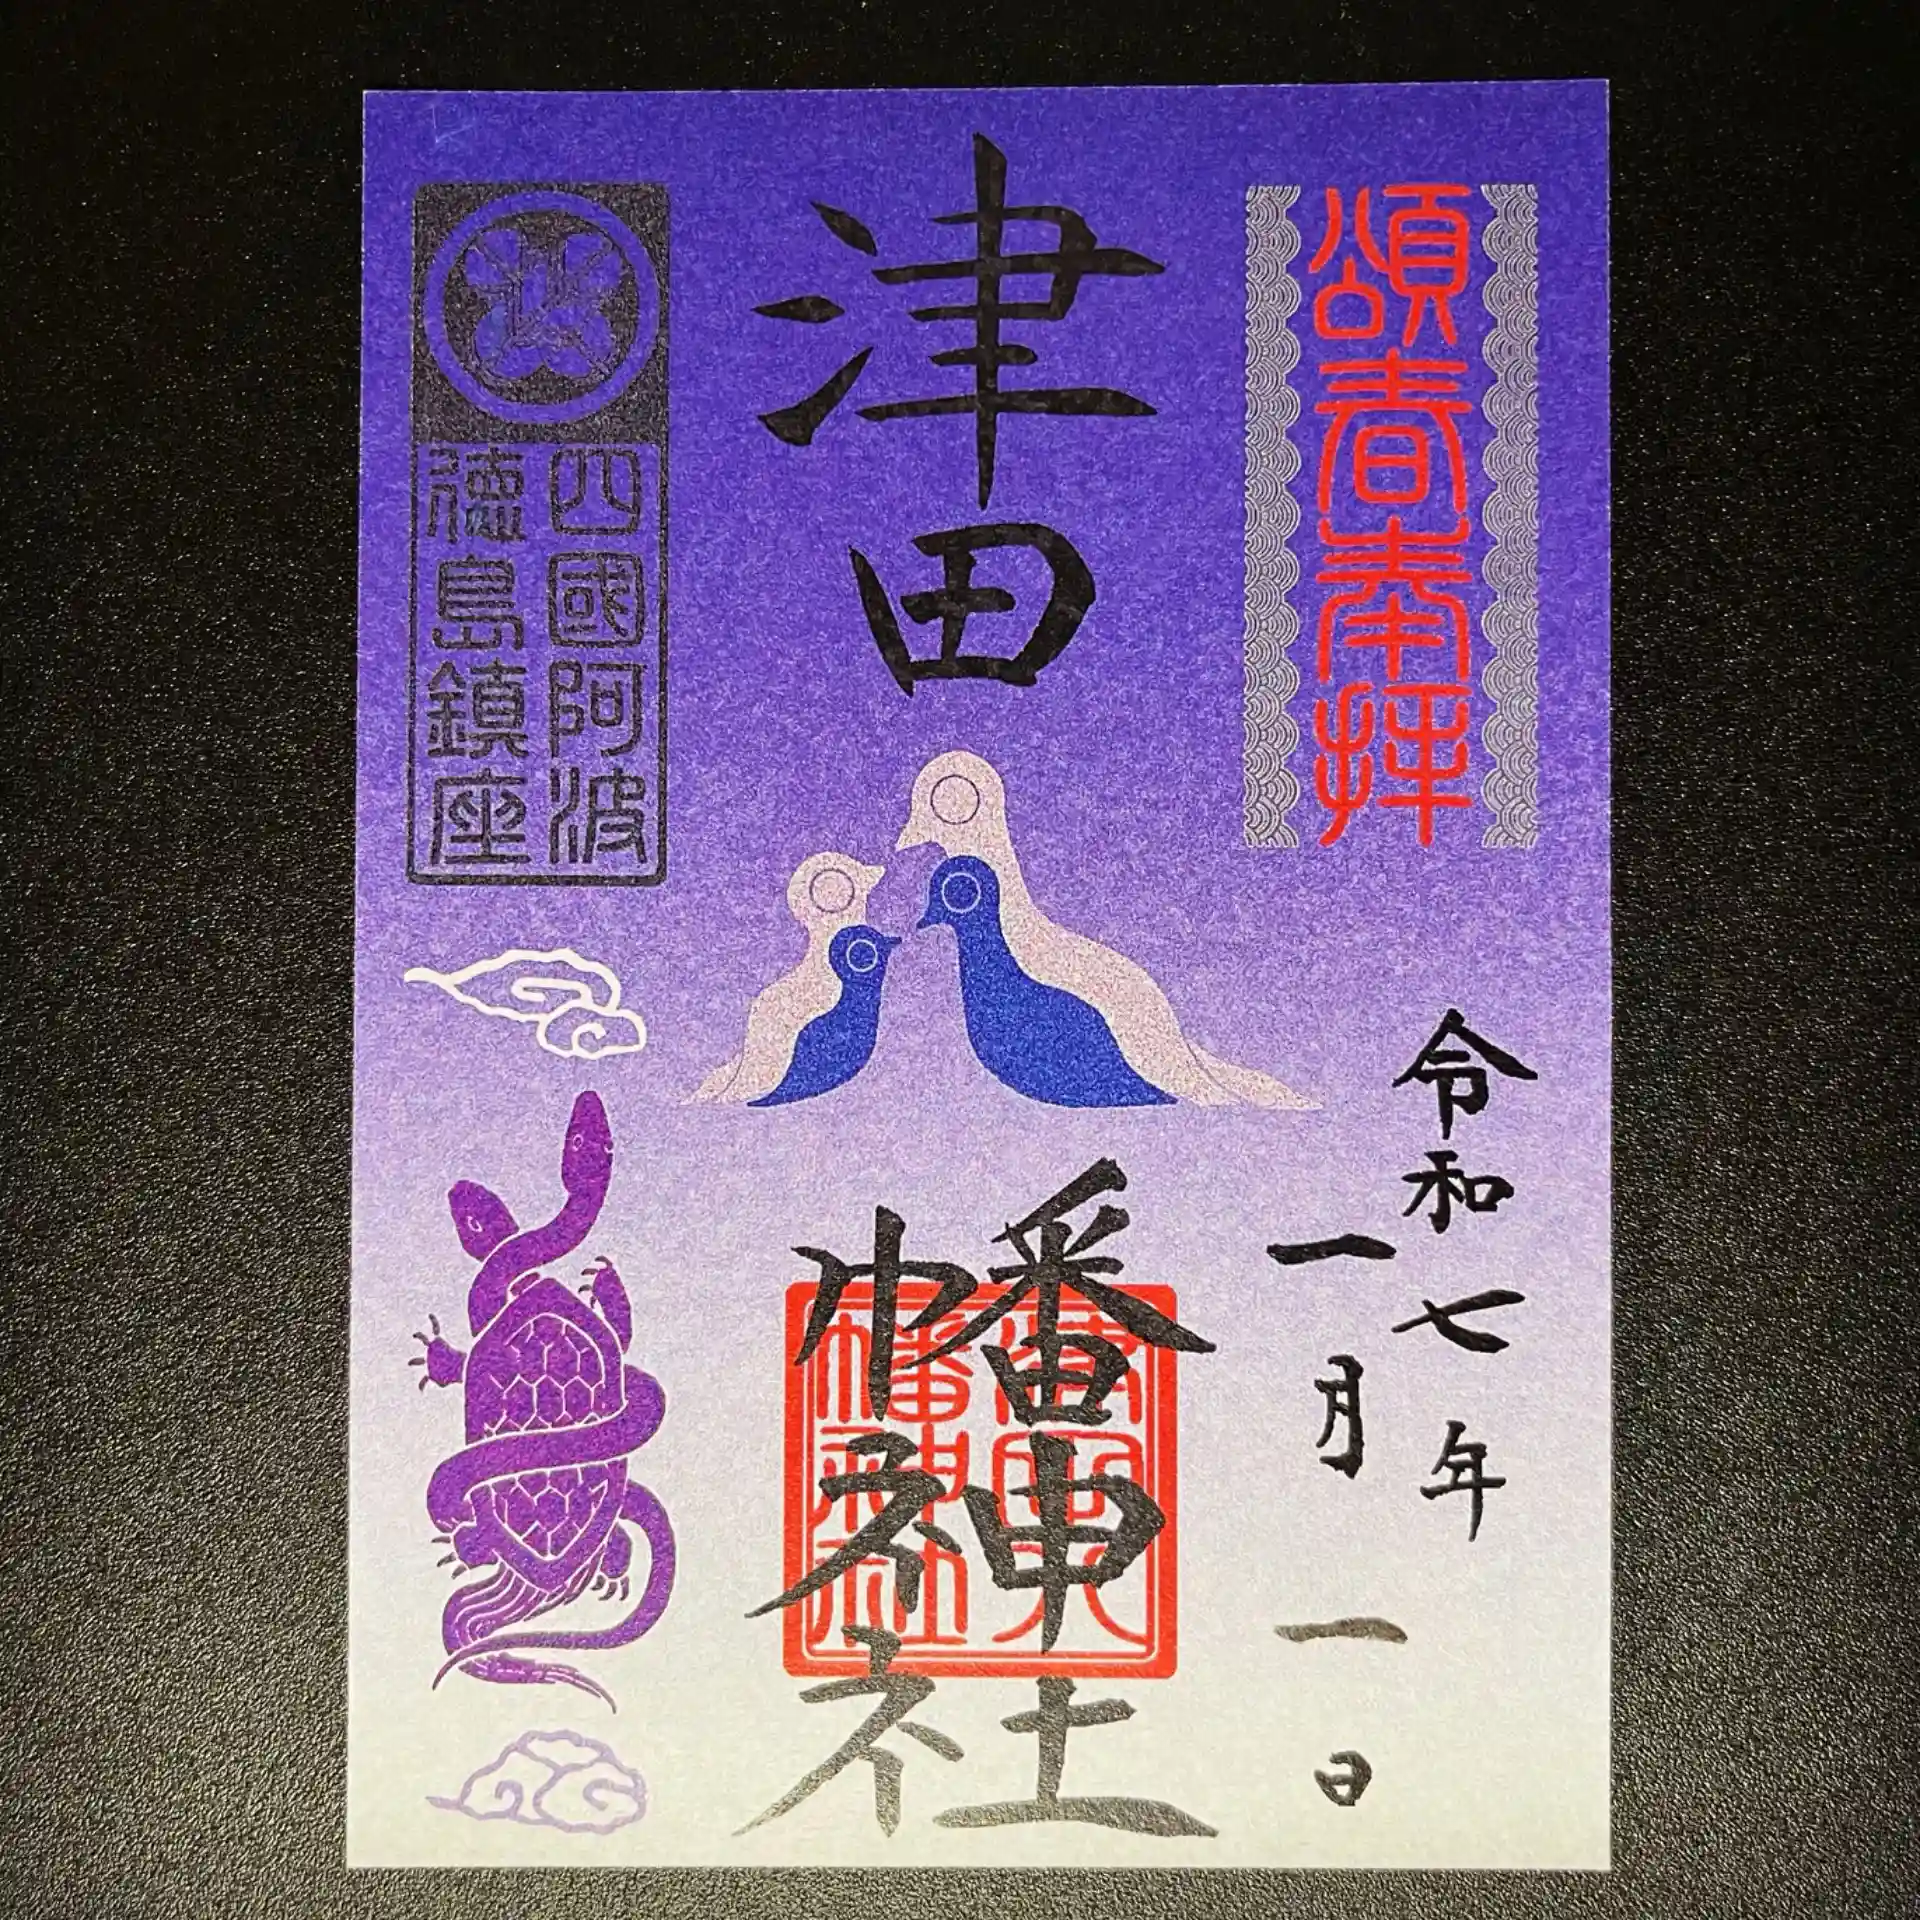 頌春奉拝
令和七年
一月一日
津田八幡神社
津田八
幡神社
四國阿波
徳島鎮座